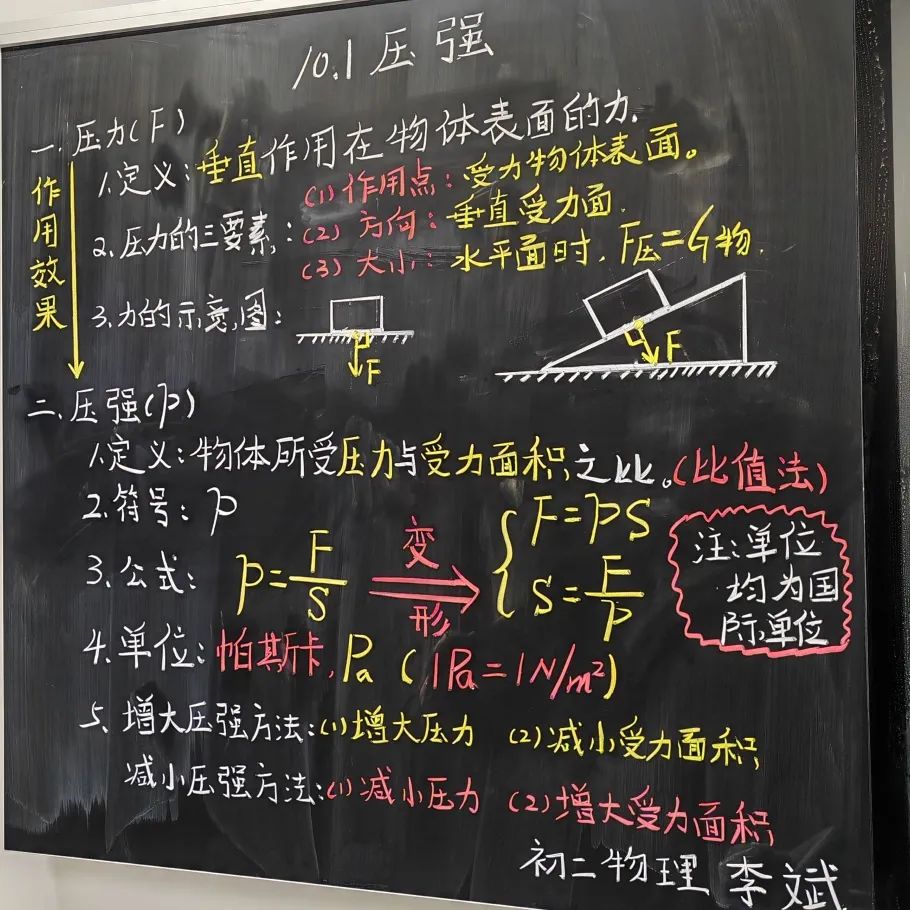 10.1 压强
一. 压力(F)
作用效果
1.定义:垂直作用在物体表面的力.
2.压力的三要素:
(1)作用点:受力物体表面。
(2)方向:垂直受力面.
(3)大小:水平面时,F压=G物.
3.力的示意图:
F
F
二.压强(p)
1.定义:物体所受压力与受力面积之比。(比值法)
2.符号:p
3.公式: p=F/S 变形 { F=pS S=F/p
注:单位
均为国
际单位
4.单位:帕斯卡,Pa (1Pa=1N/m²)
5、增大压强方法:(1)增大压力 (2)减小受力面积
减小压强方法:(1)减小压力 (2)增大受力面积
初二物理 李斌